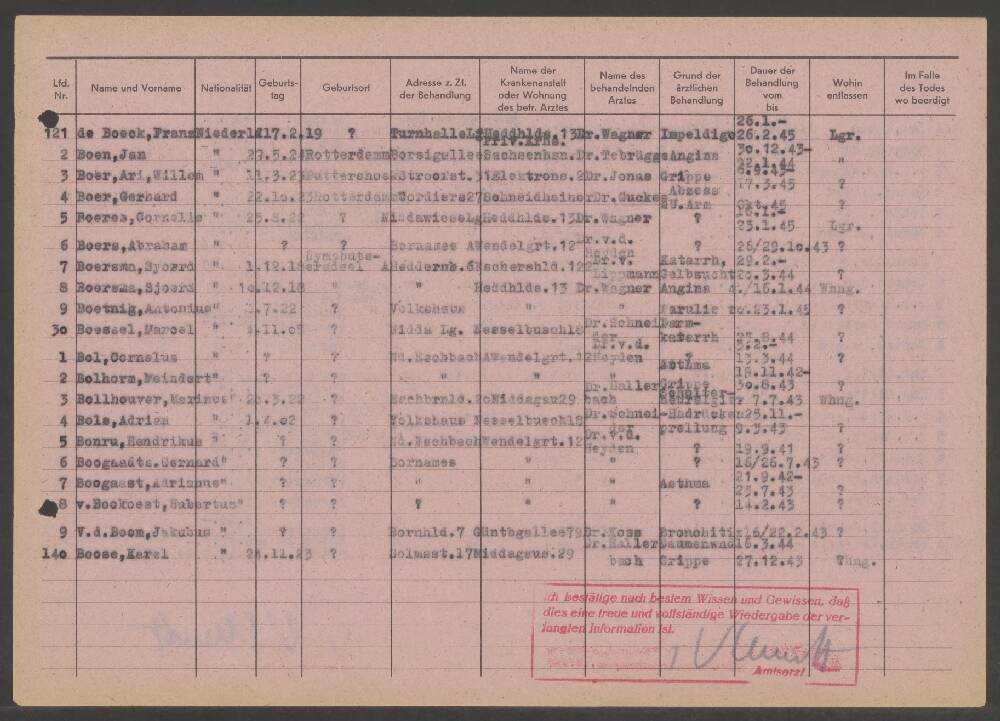 Lfd. Nr. Name und Vorname Nationalität Geburtstag Geburtsort Adresse z. Zt. der Behandlung Name der Krankenanstalt oder Wohnung des betr. Arztes Name des behandelnden Arztes Grund der ärztlichen Behandlung Dauer der Behandlung vom bis Wohin entlassen Im Falle des Todes wo beerdigt
26.1.-
121 de Boeck,Franz Niederl. 17.2.19 ? Turnhalle Heddhlds.13 Dr.Wagner Impeldigo 26.2.45 Lgr.
Priv.Krhs. 30.12.43-
2 Boen,Jan " 27.5.24 Rotterdamm Borsigallee Sachsenhsn. Dr.Tebrügge Angina 22.1.44 "
3 Boer,Ari,Willem " 11.3.23 Puttershoek Stroofst.31 Elektrons.2 Dr.Jonas Grippe 17.3.45 ?
Abzess
4 Boer,Gerhard " 22.10.23 Rotterdamm Cordiers27 Schneidhainer Dr.Guckes Arm Okt.45 ?
16.1.-
5 Boeren,Cornelis " 25.8.22 ? Niddawieselg Heddhlds.13 Dr.Wagner ? 23.1.45 Lgr.
Dr.v.d.
6 Boers,Abraham " ? ? Bornames A Wendelgrt.12 Heyden ? 26/29.10.43 ?
Dr.v. Katarrh, 29.2.-
7 Boersma,Sjoerd " 1.12.18 Heddernh.6 Eschershld.122 Lippmann Gelbsucht 20.3.44 ?
8 Boersma,Sjoerd " 10.12.18 " " Heddhlds.13 Dr.Wagner Angina 4./16.1.44 Whng.
9 Boetnig,Antonius " 3.7.22 ? Volkshaus " " Karulie 20.23.1.45 ?
Dr.Schnei Darm-
30 Boessel,Marcel " 4.11.05 " Nidda Lg. Nesselbusch18 der katarrh 23.8.44 ?
Dr.v.d. 3.2.-
1 Bol,Cornelus " ? ? Nd.Eschbach A Wendelgrt.12 Heyden ? 13.3.44 ?
Asthma 18.11.42-
2 Bolhorm,Meindert " ? ? " " " Grippe 30.8.43 ?
Dr.Haller
3 Bollhouver,Marinus " 20.3.22 " Eschbrnld.20 Niddagau29 bach 7.7.43 Whng.
Dr.Schnei-
4 Bols,Adrian " 1.4.02 " Volkshaus Nesselbusch18 der prellung 25.11.- 9.3.43 ?
Dr.v.d.
5 Bonru,Hendrikus " ? ? Nd.Eschbach Wendelgrt.12 Heyden ? 19.9.41 ?
6 Boogaadts.Gernard " ? ? Bornames " " ? 16/26.7.43 ?
21.9.42-
7 Boogaast,Adrianus " ? ? " " " Asthma 25.7.43 ?
8 v.Bookoest,Hubertus " ? ? ? " " ? 14.2.43 ?
9 V.d.Boom,Jakubus " ? ? Bornhld.7 Güntbgallee79 Dr.Koss Bronchitis 16/22.2.43 ?
Dr.Haller Daumenwnd 16.3.44
140 Boose,Karel " 24.11.23 ? Solmsst.17 Niddagaus.29 bach Grippe 27.12.43 Whng.
Ich bestätige nach bestem Wissen und Gewissen, daß
dies eine treue und vollständige Wiedergabe der ver-
langten Information ist.
Amtsarzt